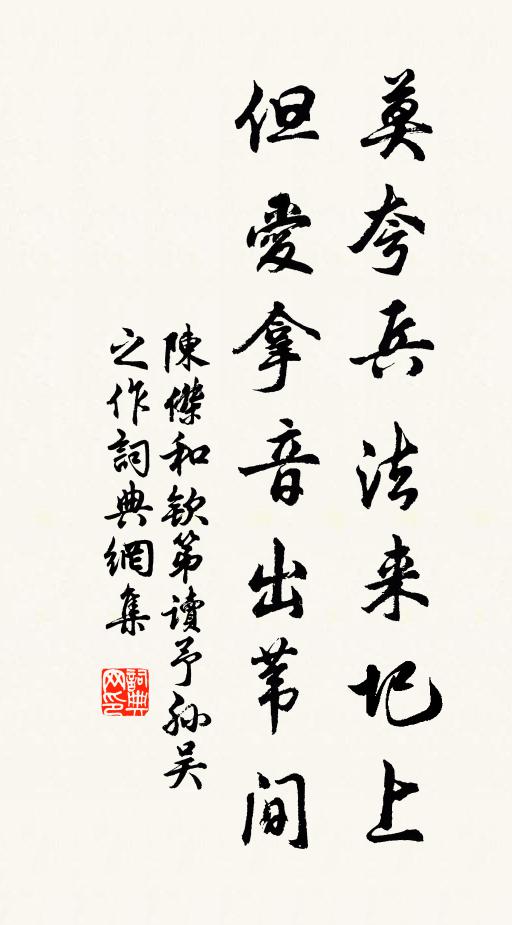 莫夸兵法来圯上
但愛拿音出苇间
陳傑和欽弟讀予孙吴
之作詞典網集
詞典网印